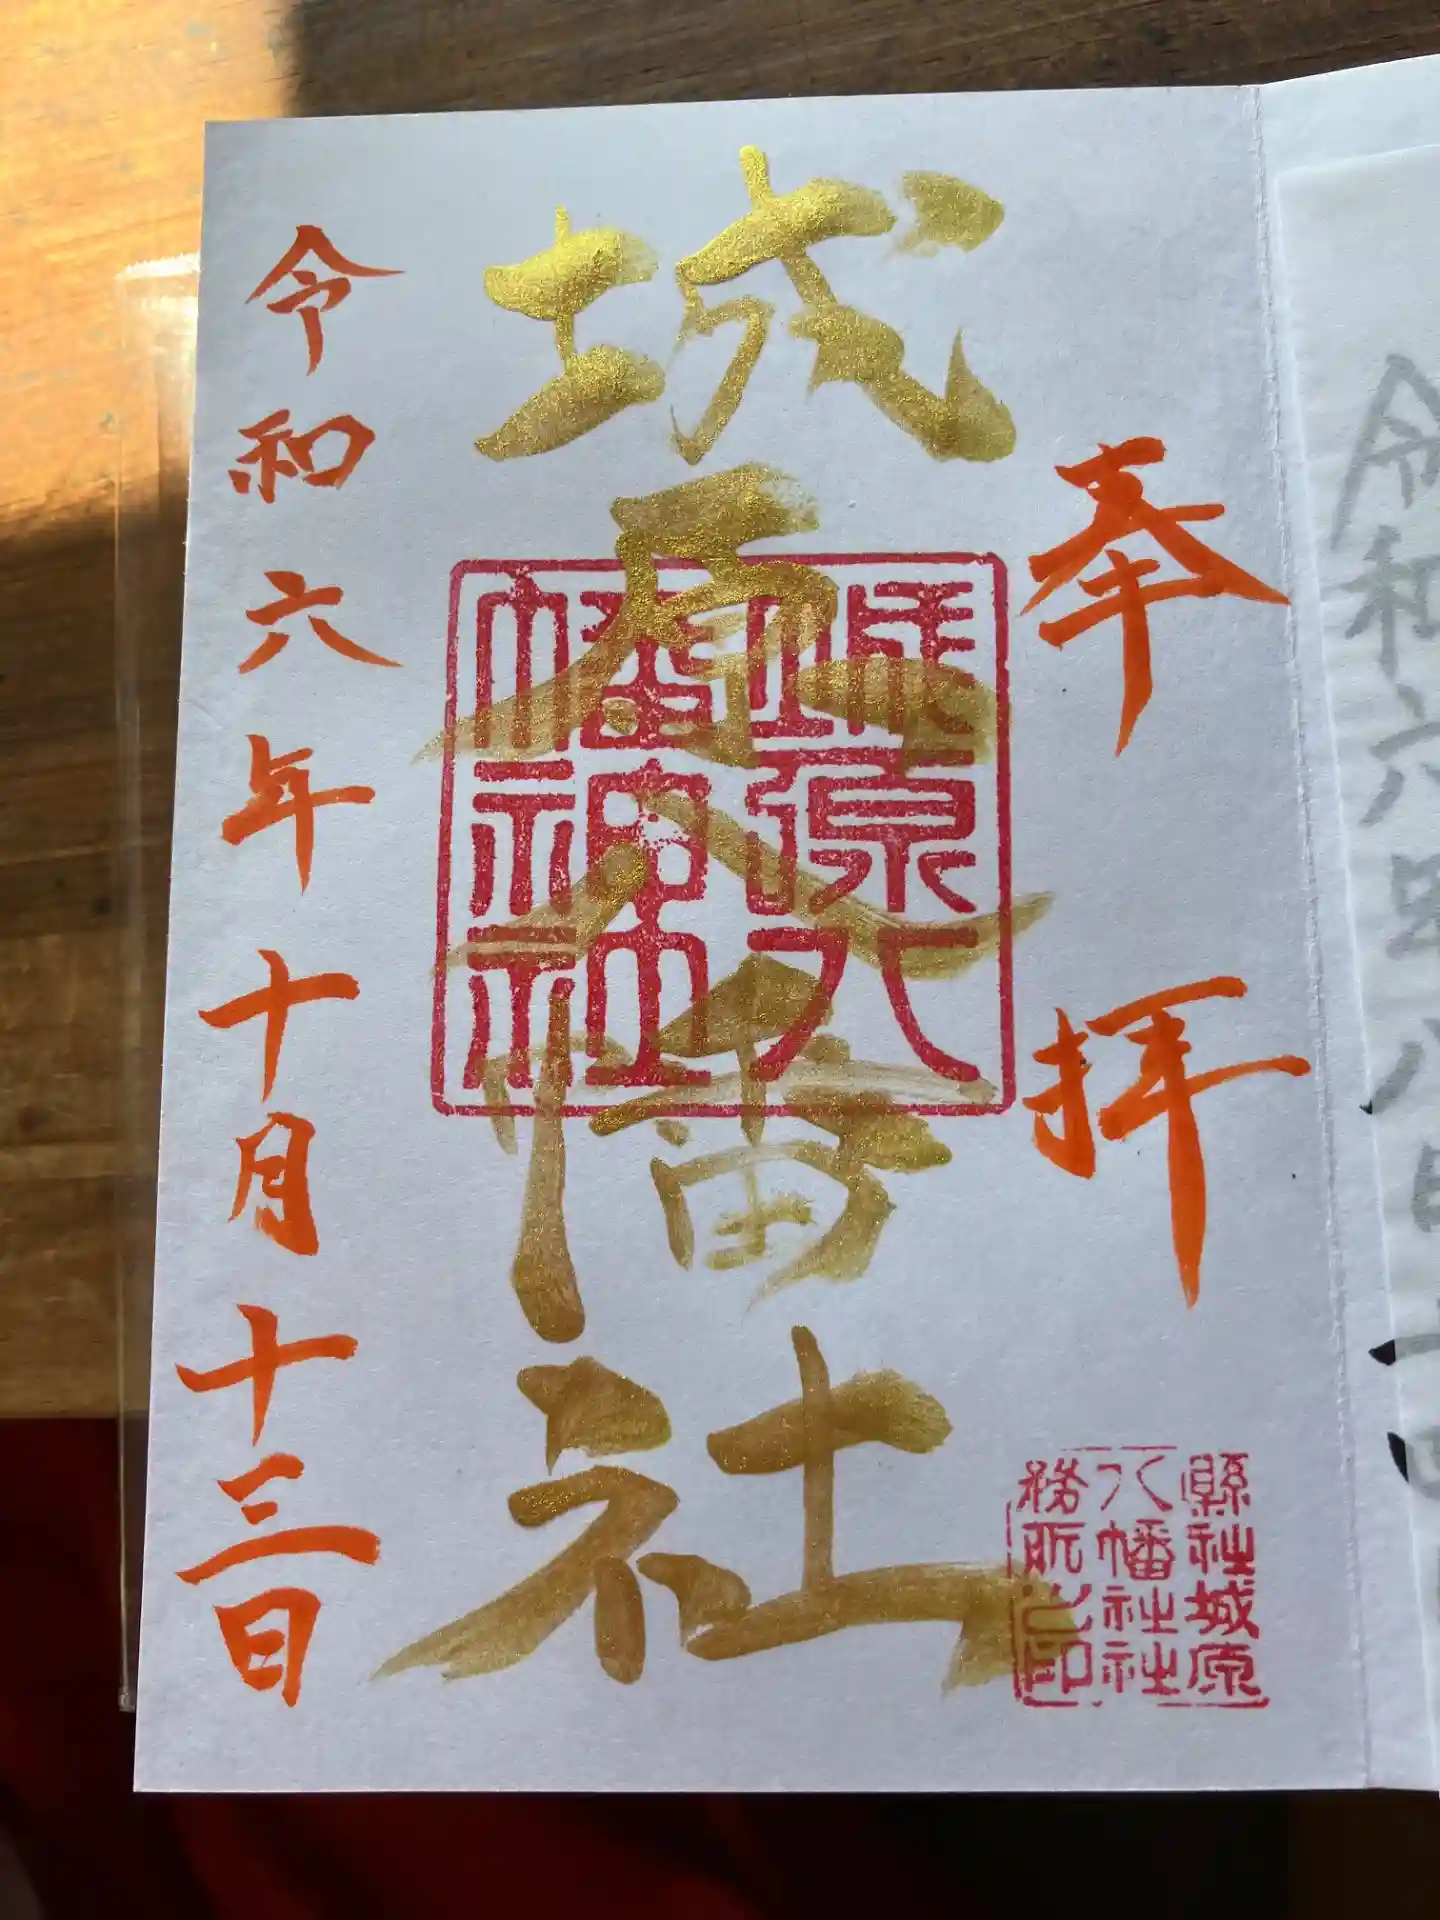 奉拝
城原八幡社
城原八
幡神社
縣社城原
八幡社社
務所之印
令和六年十月十三日
令和六年八月